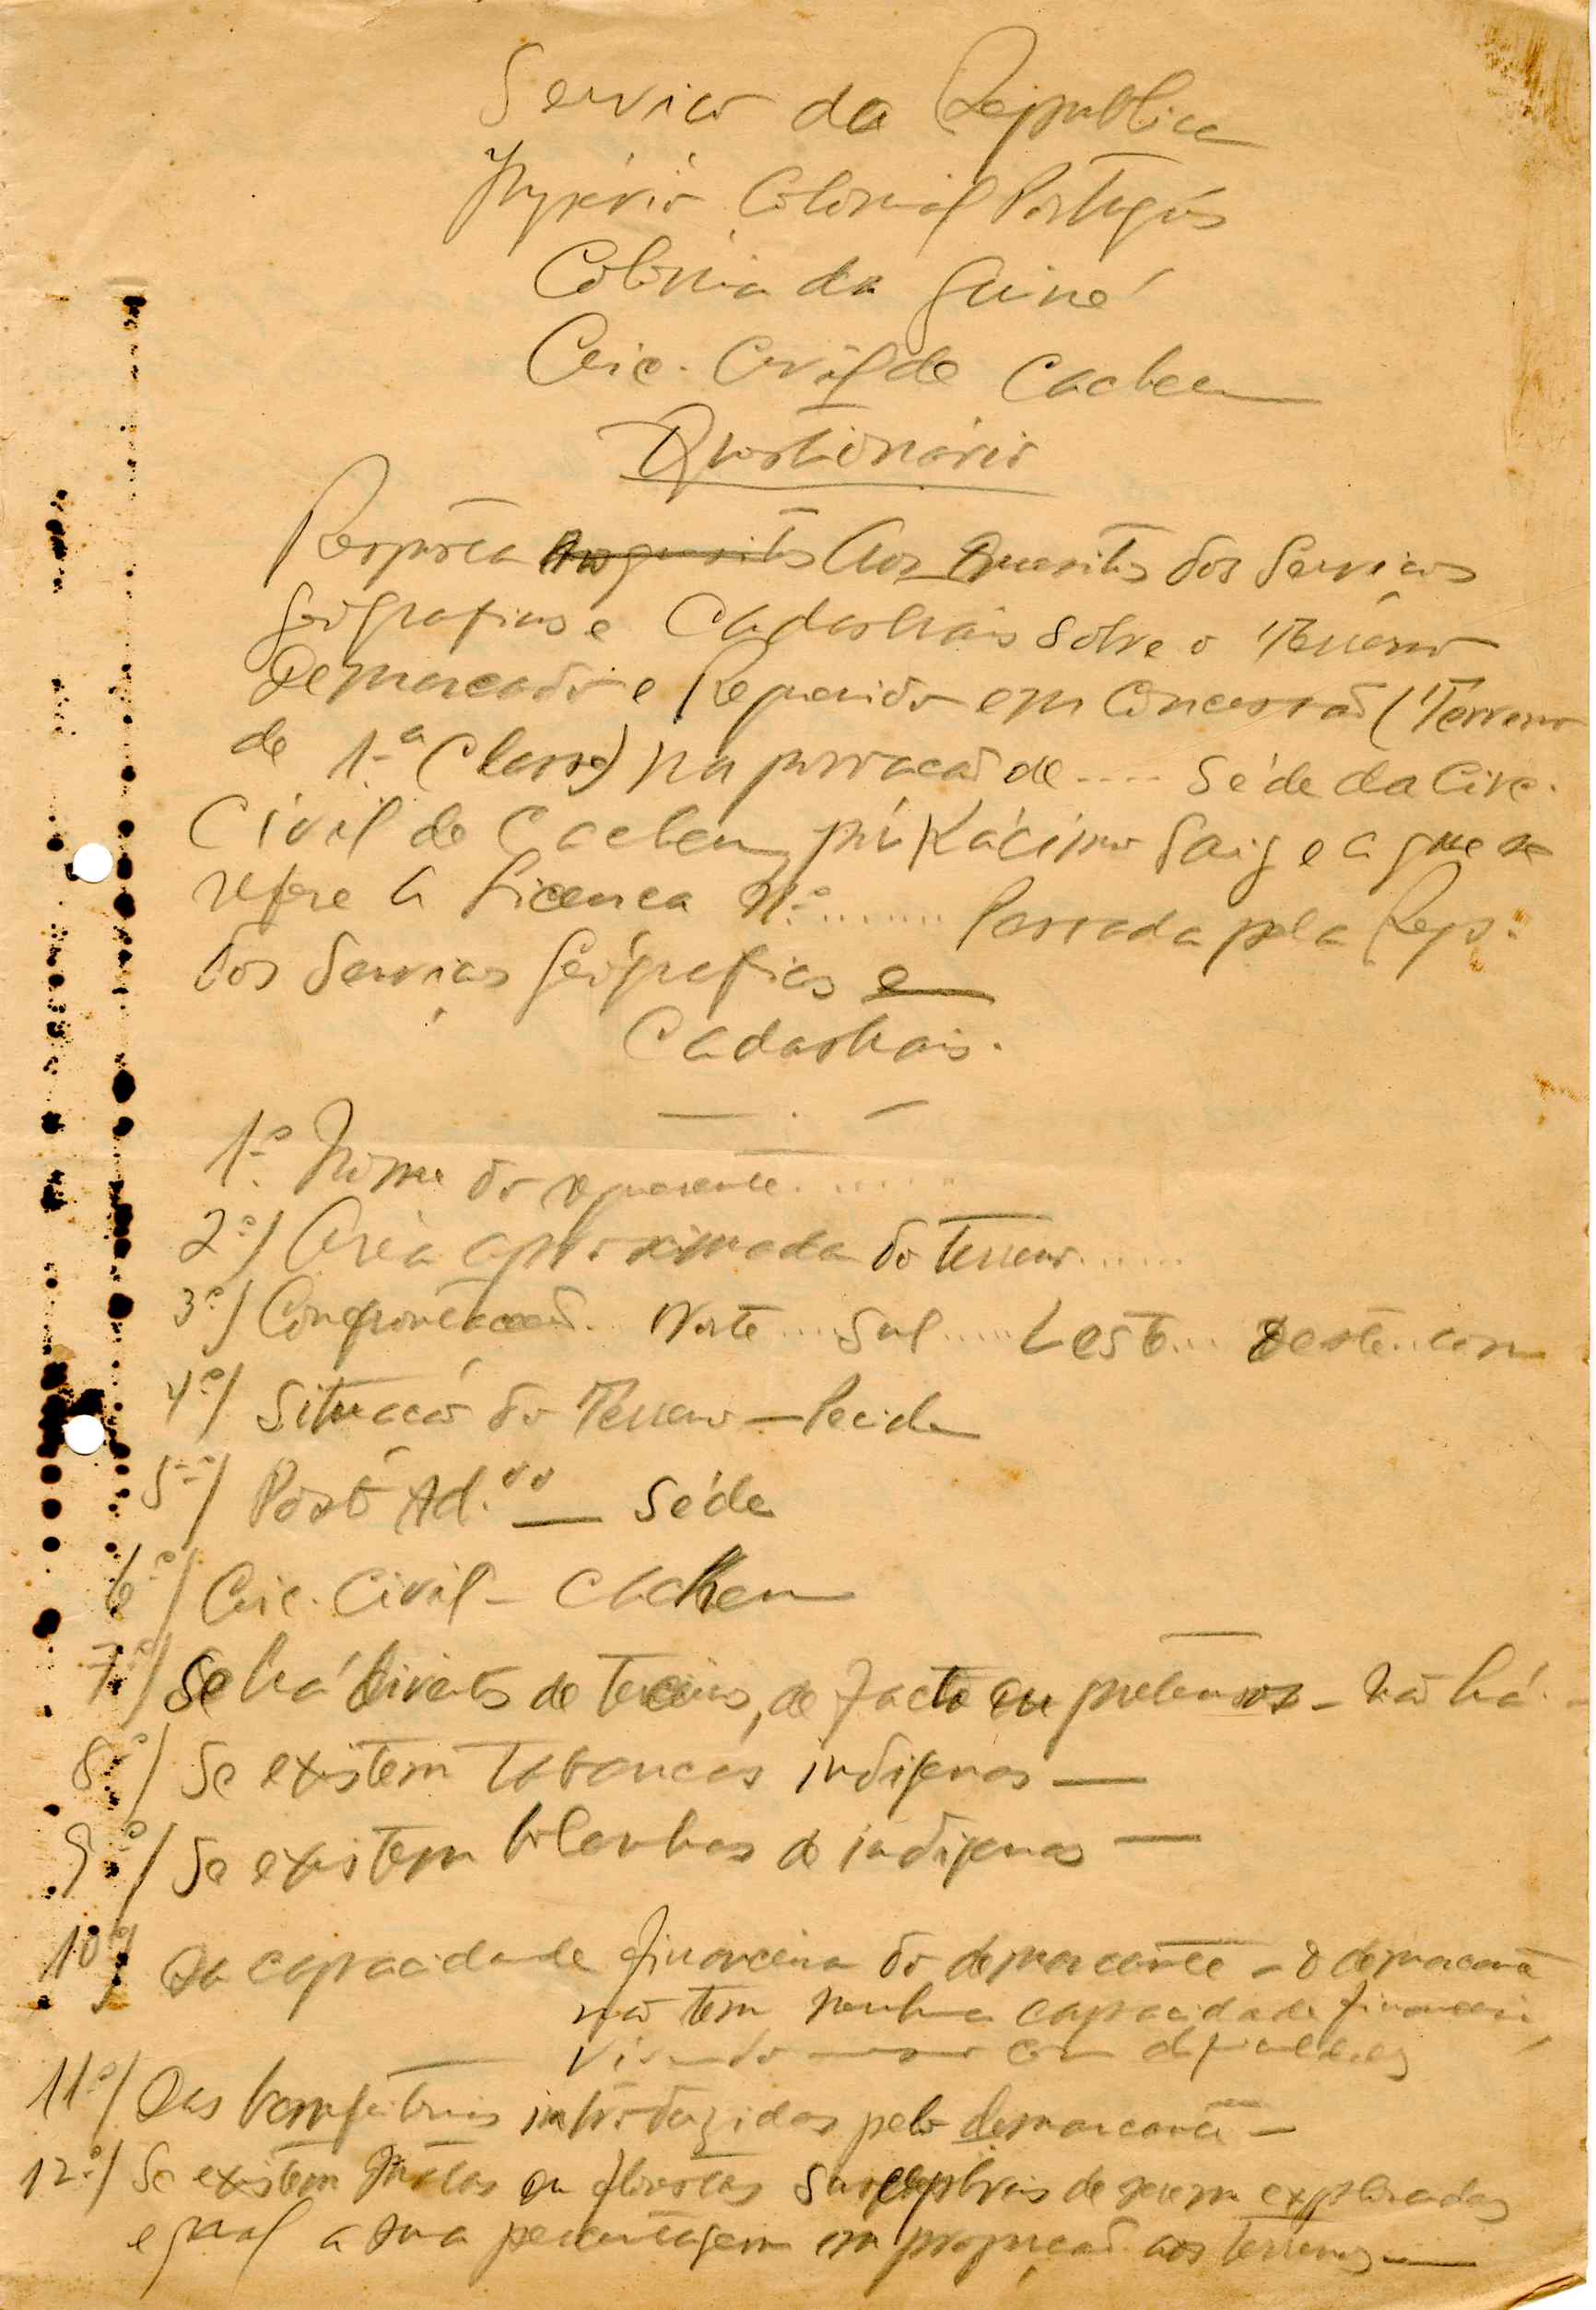 Serviço da Républica
Império Colonial Portugûs
Colónia da Guiné
Circ. Civil de Cacheu
Questionário
Resposta Aos quesitos Aos Quesitos dos Serviços
Geograficos e Cadastrais sobre o Terreno
Demarcado e Requerido em Concessão (Terreno
de 1.ª Classe) na povoação de .... Séde da Circ.
Civil de Cacheu, por Kácimo Saig e a que se
refere a Licença N.º ....... Passada pela Rep.
dos Serviços Geógraficos e
Cadastrais.
1.º Nome do requerente.......
2.º/ Area aproximada do terreno......
3.º/ Confrontação. Norte .... Sul ..... Leste... Oeste.. com
4.º/ Situação do Terreno —
5.º/ Posto Ad.vo — Séde
6.º/ Circ. Civil - Cacheu
7.º/ Se há direitos de terceiros, de facto ou pretensos - Não há. -
8.º/ Se existem Tabancas indigenas —
9.º/ Se existem bolanhas de indigenas —
10.º/ Da capacidade financeira do demarcante - O demarcante
não tem nenhuma capacidade financeira,
vivendo com dificuldades
11.º/ Das bemfeitorias introduzidas pelo demarcante -
12.º/ Se existem matas ou florestas susceptiveis de serem exploradas
e qual a sua percentagem em proporção aos terrenos —